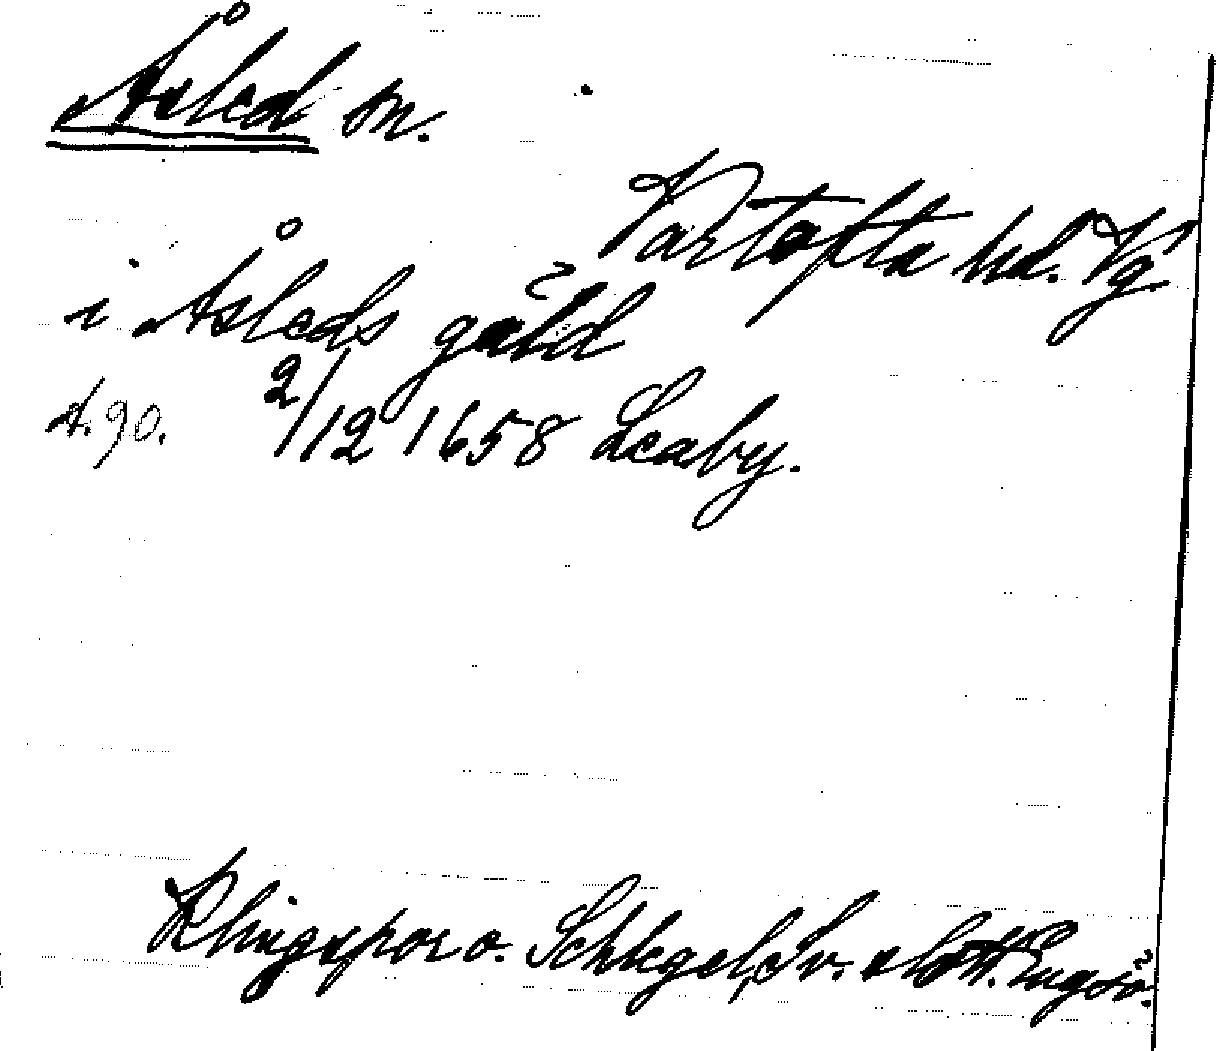 Åsled sn.
Vartofta hd. Vg
i Åsleds gäld
s. 90. 2/12 1658 Leaby.
Klingspor o. Schlegel, Sv. slott. Engsö.